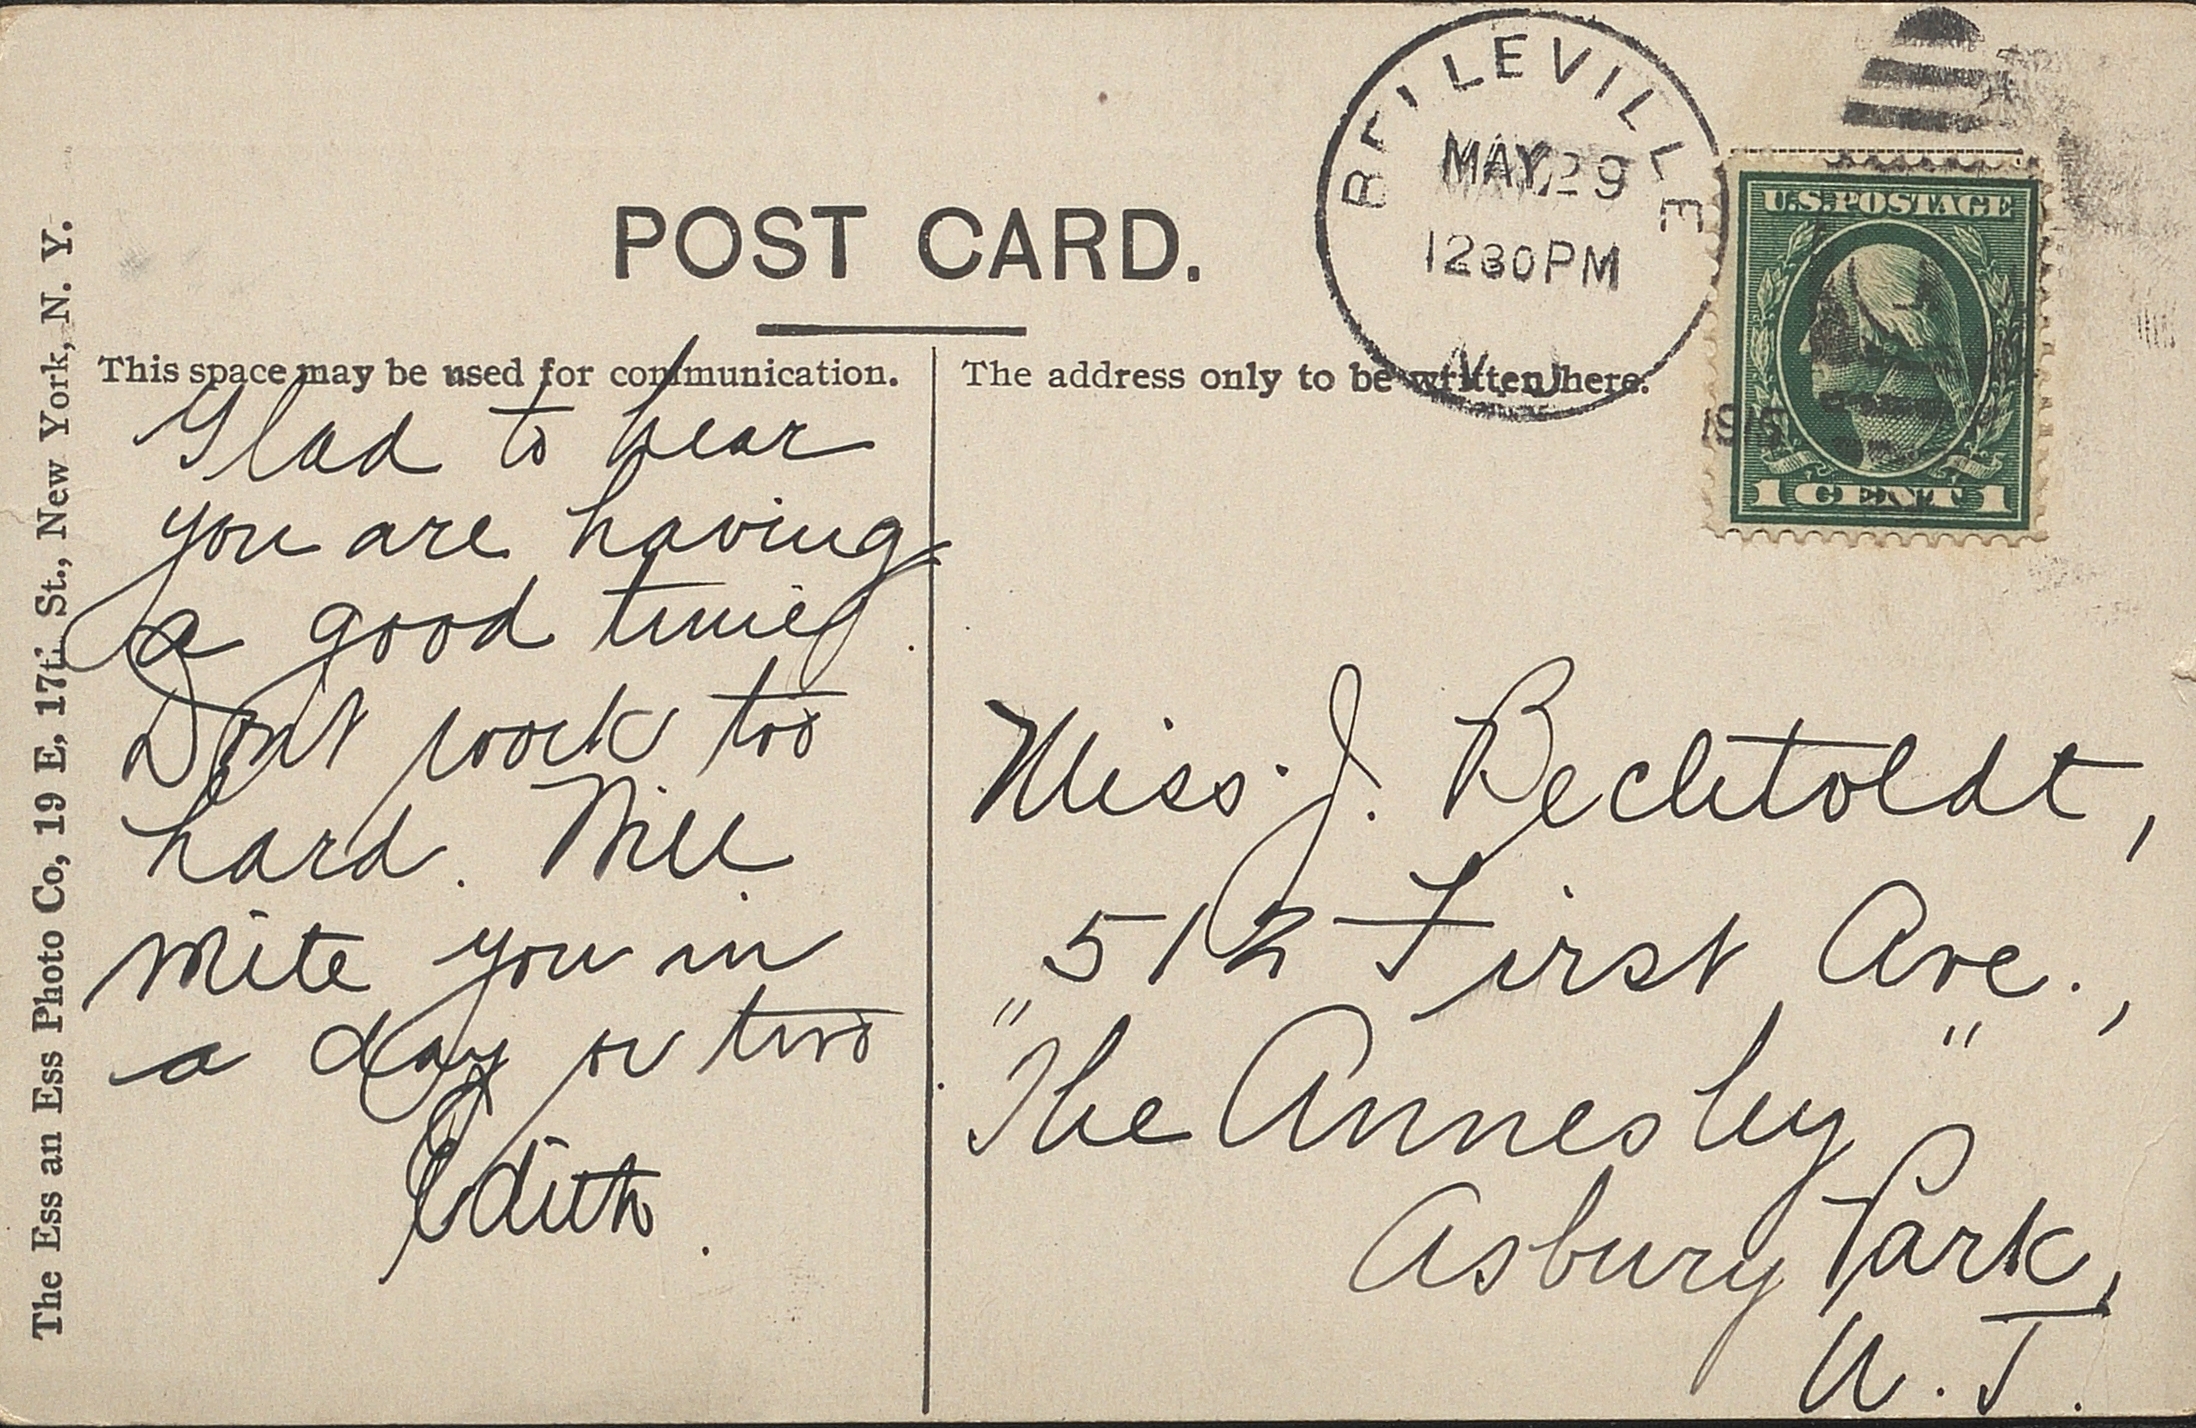 POST CARD.
BELLEVILLE
MAY 29
1230PM
N.J.
1915
U.S.POSTAGE
1 CENT 1
This space may be used for communication.
The address only to be written here.
Glad to hear
you are having
a good time
Dont work too
hard. Will
write you in
a day or two
Edith.
Miss. J. Bechtoldt,
512 First Ave.,
"The Annesley"
Asbury Park,
N.J.
The Ess an Ess Photo Co, 19 E, 17t. St., New York, N. Y.